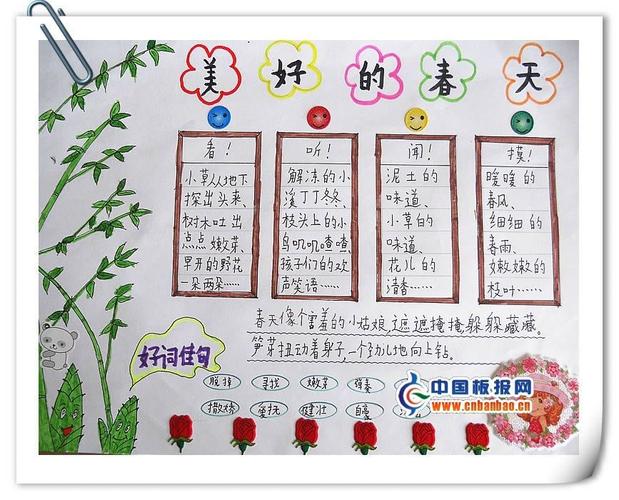 美好的春天
看！
小草从地下
探出头来、
树木吐出
点点嫩芽、
早开的野花
一朵两朵……
听！
解冻的小
溪丁丁冬冬、
枝头上的小
鸟叽叽喳喳、
孩子们的欢
声笑语……
闻！
泥土的
味道、
小草的
味道、
花儿的
清香……
摸！
暖暖的
春风、
细细的
春雨、
嫩嫩的
枝叶……
春天像个害羞的小姑娘，遮遮掩掩、躲躲藏藏。
笋芽扭动着身子，一个劲儿地向上钻。
好词佳句
脱掉 寻找 嫩芽 弹奏
撒娇 健壮 自豪
中国板报网
www.cnbanbao.cn